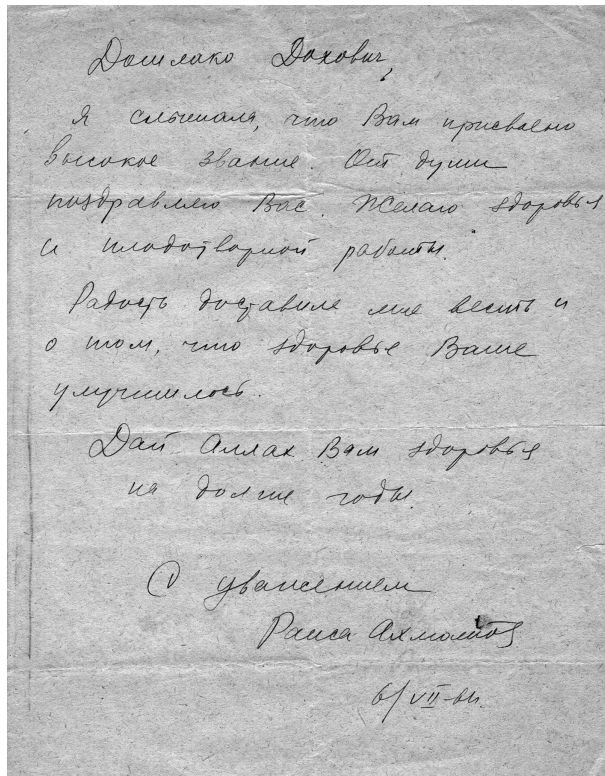 Дошлако Дохович,
Я слышала, что Вам присвоено
высокое звание. От души
поздравляю Вас. Желаю здоровья
и плодотворной работы.
Радость доставила мне весть и
о том, что здоровье Ваше
улучшилось.
Дай Аллах Вам здоровья
на долгие годы.
С уважением
Раиса
6/VII-64.